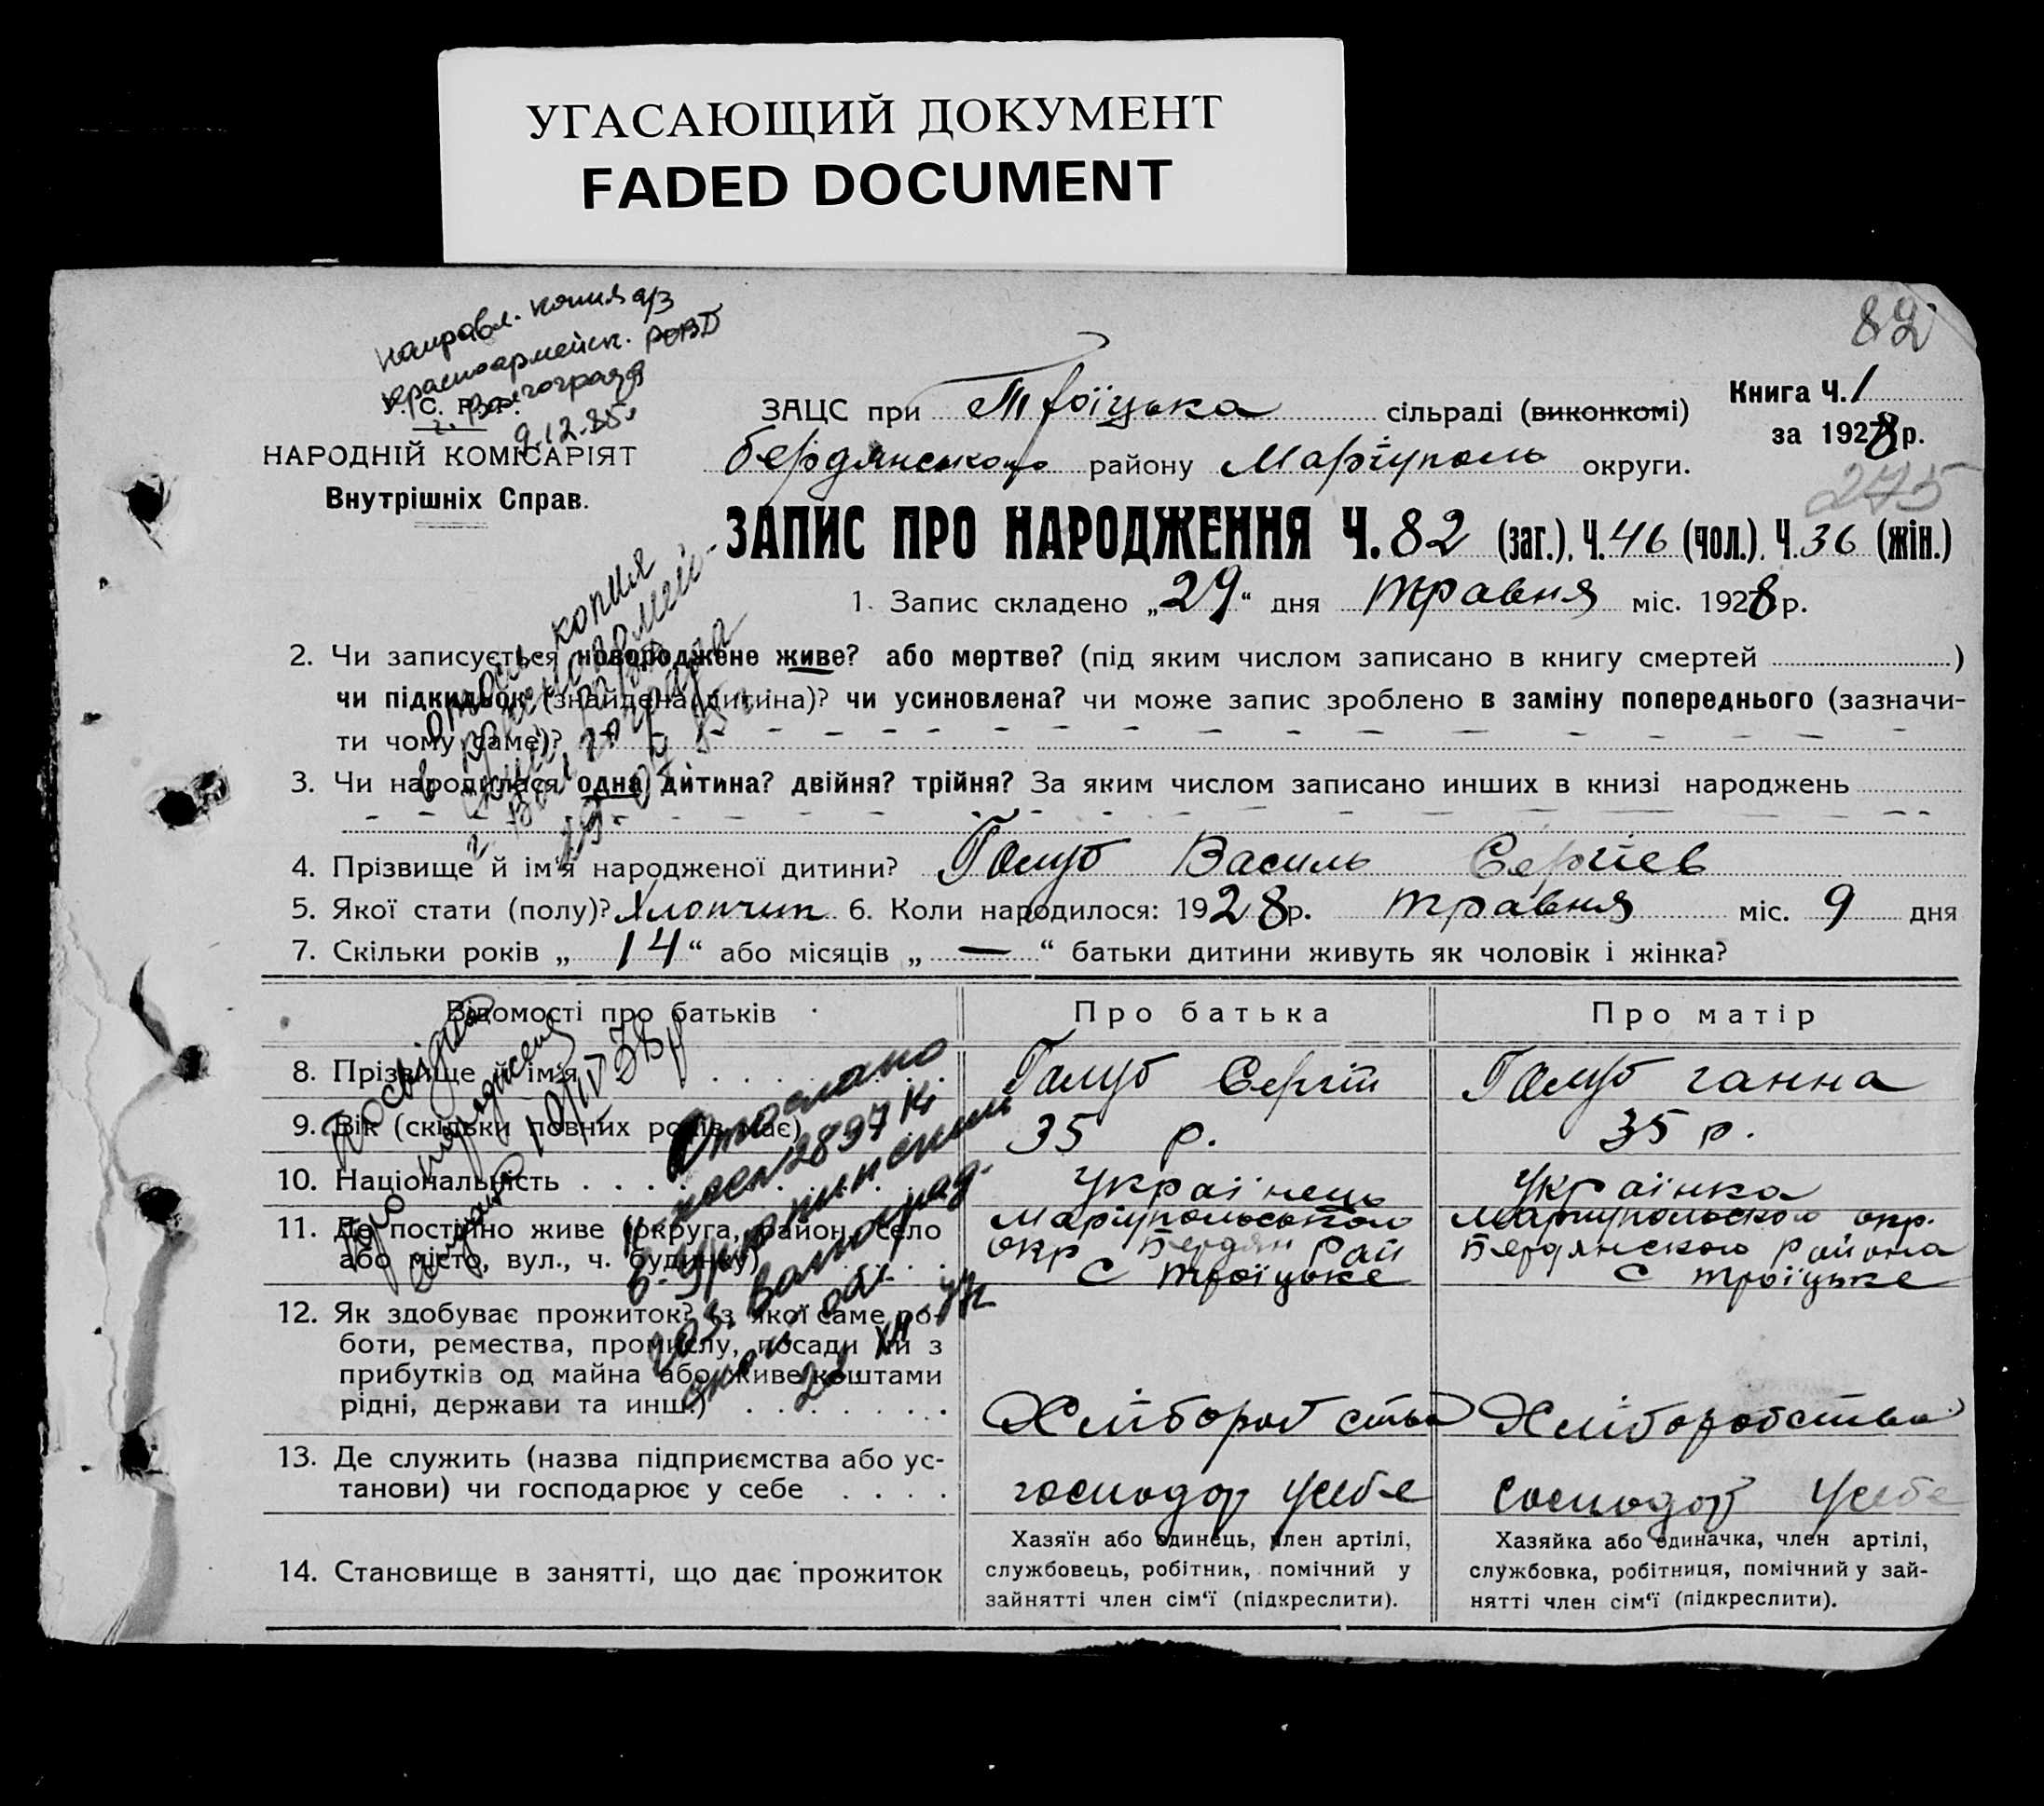 УГАСАЮЩИЙ ДОКУМЕНТ
FADED DOCUMENT
82
направл. копия а/з
красноармейск. РОВД
г. Волгограда
9.12.85.
У. С. Р. Р.
НАРОДНІЙ КОМІСАРІЯТ
Внутрішніх Справ.
ЗАЦС при Троїцька сільраді (виконкомі)
Книга Ч. 1
за 1928 р.
бердянського району Маріуполь округи.
275
ЗАПИС ПРО НАРОДЖЕННЯ Ч. 82 (заг.), Ч. 46 (чол.), Ч. 36 (жін.)
1. Запис складено „29“ дня травня міс. 1928 р.
2. Чи записується новороджене живе? або мертве? (під яким числом записано в книгу смертей )
чи підкидьок (знайдена дитина)? чи усиновлена? чи може запис зроблено в заміну попереднього (зазначи-
ти чому саме)?
3. Чи народилася одна дитина? двійня? трійня? За яким числом записано инших в книзі народжень
4. Прізвище й ім'я народженої дитини? Голуб Василь Сергіев
5. Якої стати (полу)? Хлопчик 6. Коли народилося: 1928 р. травня міс. 9 дня
7. Скільки років „14“ або місяців „—“ батьки дитини живуть як чоловік і жінка?
копия
г. Волгограда
Відомості про батьків
Про батька
Про матір
8. Прізвище й ім'я
Голуб Сергій
Голуб ганна
9. Вік (скільки повних років має)
35 р.
35 р.
10. Національність
Українець
Українка
11. Де постійно живе (округа, район, село
або місто, вул., ч. будинку)
Маріупольського
окр Бердян Рай
С Троїцьке
Мариупольского окр.
Бердянского района
С Троїцьке
12. Як здобуває прожиток? (з якої саме ро-
боти, ремества, промислу, посади чи з
прибутків од майна або живе коштами
рідні, держави та инш.)
Хліборобства
Хліборобства
13. Де служить (назва підприємства або ус-
танови) чи господарює у себе
господор усебе
господор усебе
14. Становище в занятті, що дає прожиток
Хазяїн або одинець, член артілі,
службовець, робітник, помічний у
зайнятті член сім'ї (підкреслити).
Хазяйка або одиначка, член артілі,
службовка, робітниця, помічний у зай-
нятті член сім'ї (підкреслити).
Посвідка
про народження
10/IV 38 р
Отослано